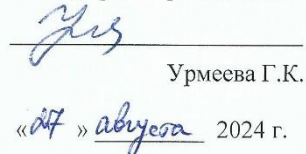 Урмеева Г.К.
«27 » августа 2024 г.